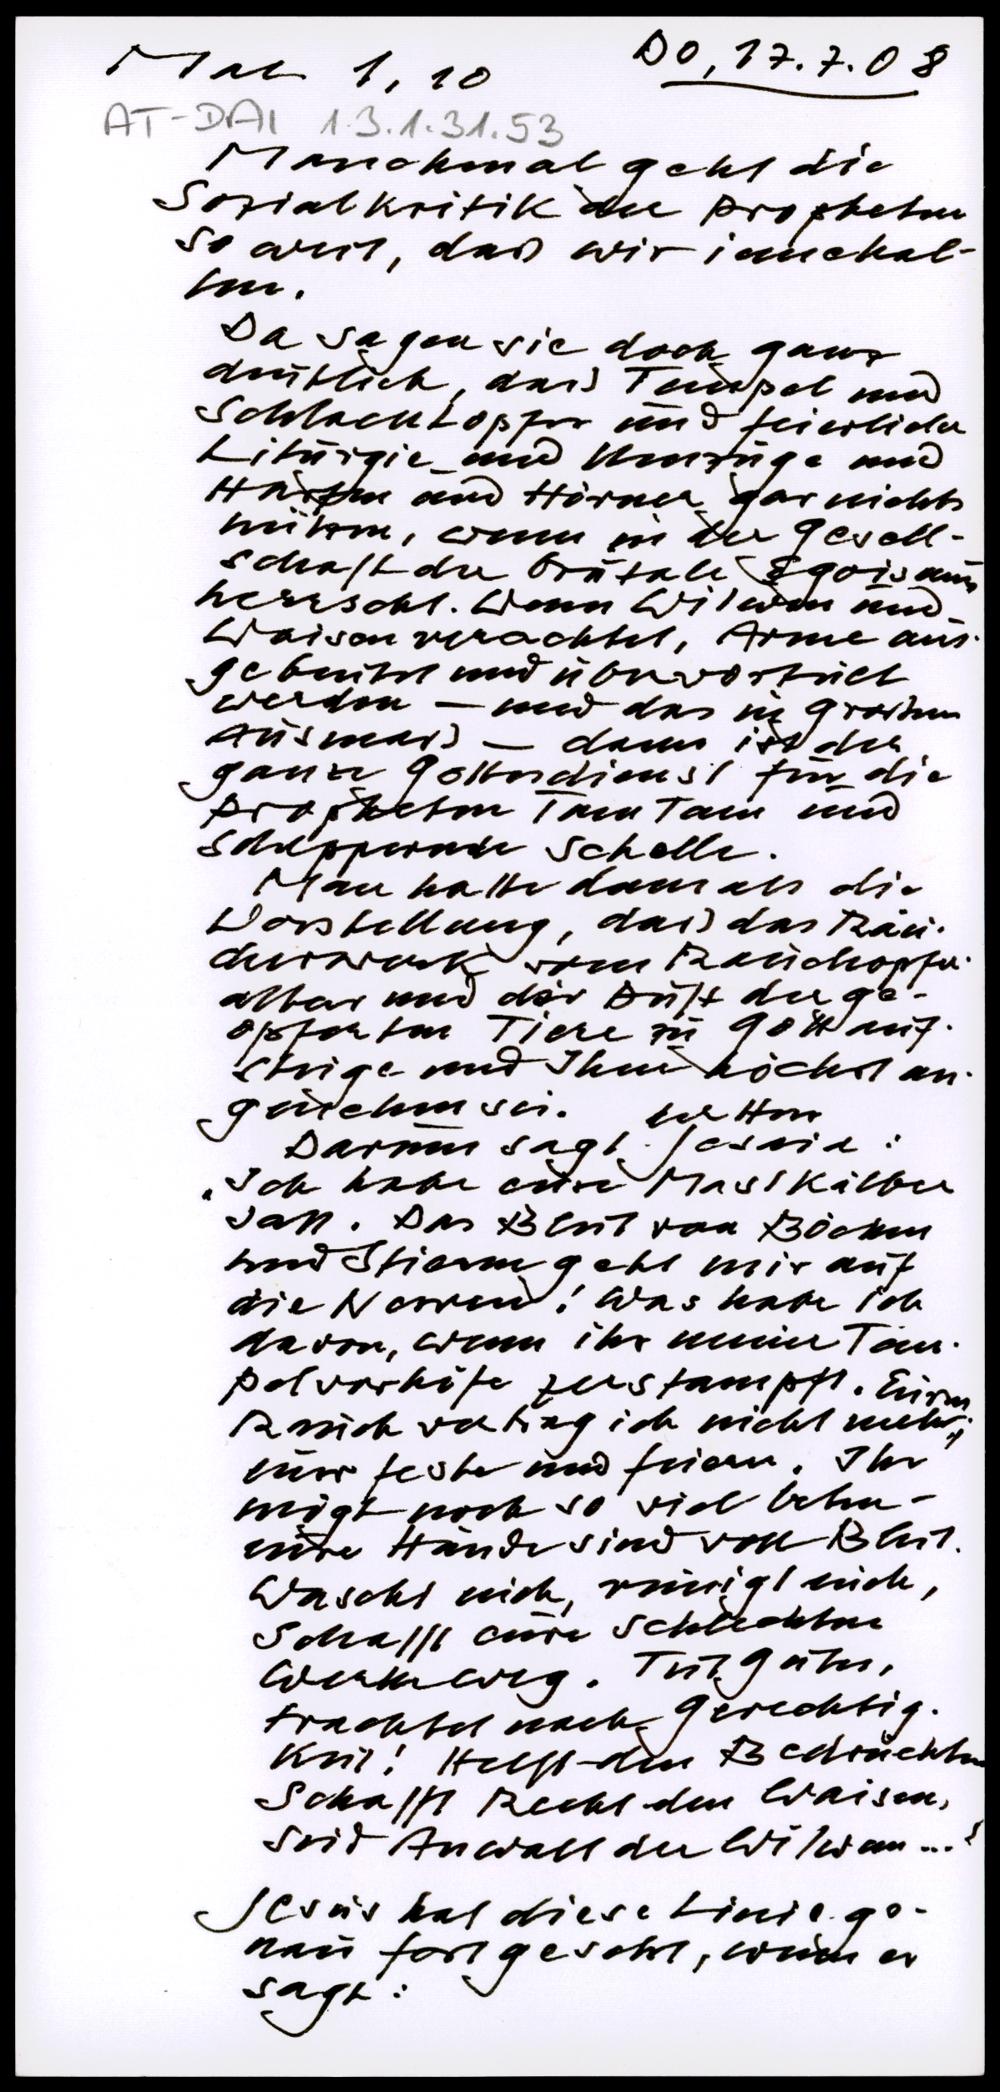 Mal 1,10
Do, 17.7.08
AT-DAI 1.3.1.31.53
Manchmal geht die
Sozialkritik der Propheten
so weit, daß wir innehal-
ten.
Da sagen sie doch ganz
deutlich, daß Tempel und
Schlachtopfer und feierliche
Liturgie und Umzüge und
Harfen und Hörner gar nichts
nützen, wenn in der Gesell-
schaft der brutale Egoismus
herrscht. Wenn Witwen und
Waisen verachtet, Arme aus-
gebeutet und übervorteilt
werden – und das in großem
Ausmaß – dann ist der
ganze Gottesdienst für die
Propheten Tam Tam und
scheppernde Schelle.
Man hatte damals die
Vorstellung, daß das Räu-
cherwerk vom Rauchopfer-
altar und der Duft der ge-
opferten Tiere zu Gott auf-
steige und Ihm höchst an-
genehm sei.
Darum sagt der Herr Jesaia:
"Ich habe eure Mastkälber
satt. Das Blut von Böcken
und Stieren geht mir auf
die Nerven! Was habe ich
davon, wenn ihr meine Tem-
pelvorhöfe zerstampft. Euren
Rauch vertrag ich nicht mehr,
eure Feste und Feiern. Ihr
mögt noch so viel beten –
eure Hände sind voll Blut.
Wascht euch, reinigt euch,
schafft eure schlechten
Werke weg. Tut Gutes,
trachtet nach Gerechtig-
keit! Helft den Bedrückten
Schafft Recht den Waisen,
seid Anwalt der Witwen ...!
Jesus hat diese Linie ge-
nau fortgesetzt, wenn er
sagt: